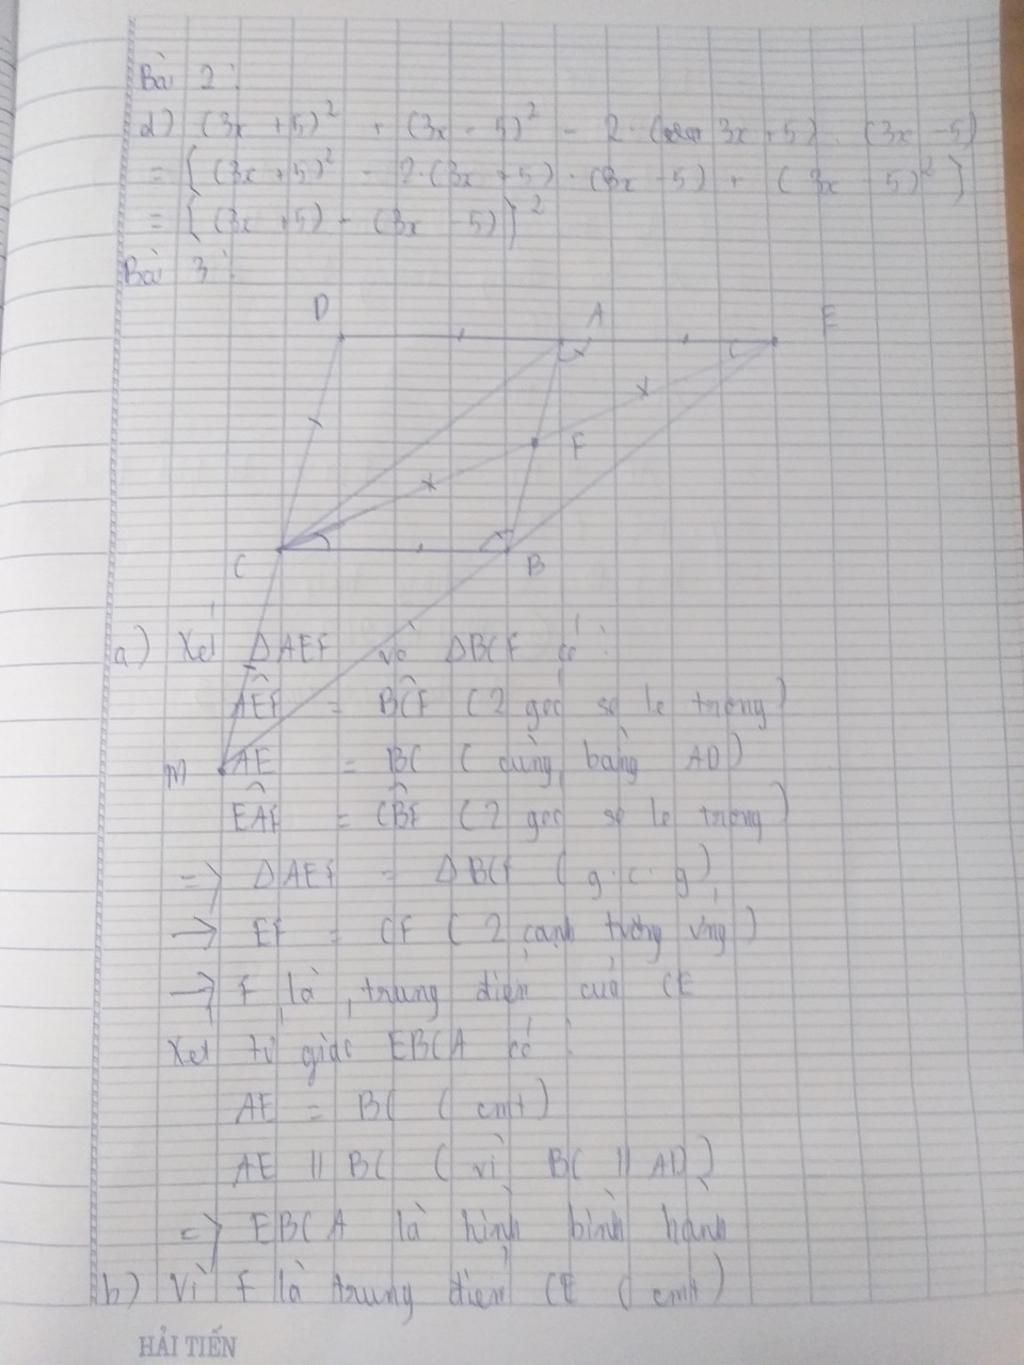 Bài 2:
d) (3x + 5)² + (3x - 5)² - 2. ( 3x + 5) . (3x - 5)
= [ (3x + 5)² - 2.(3x + 5) . (3x - 5) + ( 3x - 5)² ]
= [ (3x + 5) - (3x - 5) ]²
Bài 3:
D A E
F
C B
a) Xét ΔAEF và ΔBCF có:
AÊF = BĈF ( 2 góc so le trong)
M
AE = BC ( cùng bằng AD)
EÂF = CB̂F ( 2 góc so le trong)
=> ΔAEF = ΔBCF ( g.c.g)
-> EF = CF ( 2 cạnh tương ứng )
-> F là trung điểm của CE
Xét tứ giác EBCA có:
AE = BC ( cmt)
AE // BC ( vì BC // AD)
=> EBCA là hình bình hành
b) Vì F là trung điểm CE ( cmt)
HẢI TIẾN